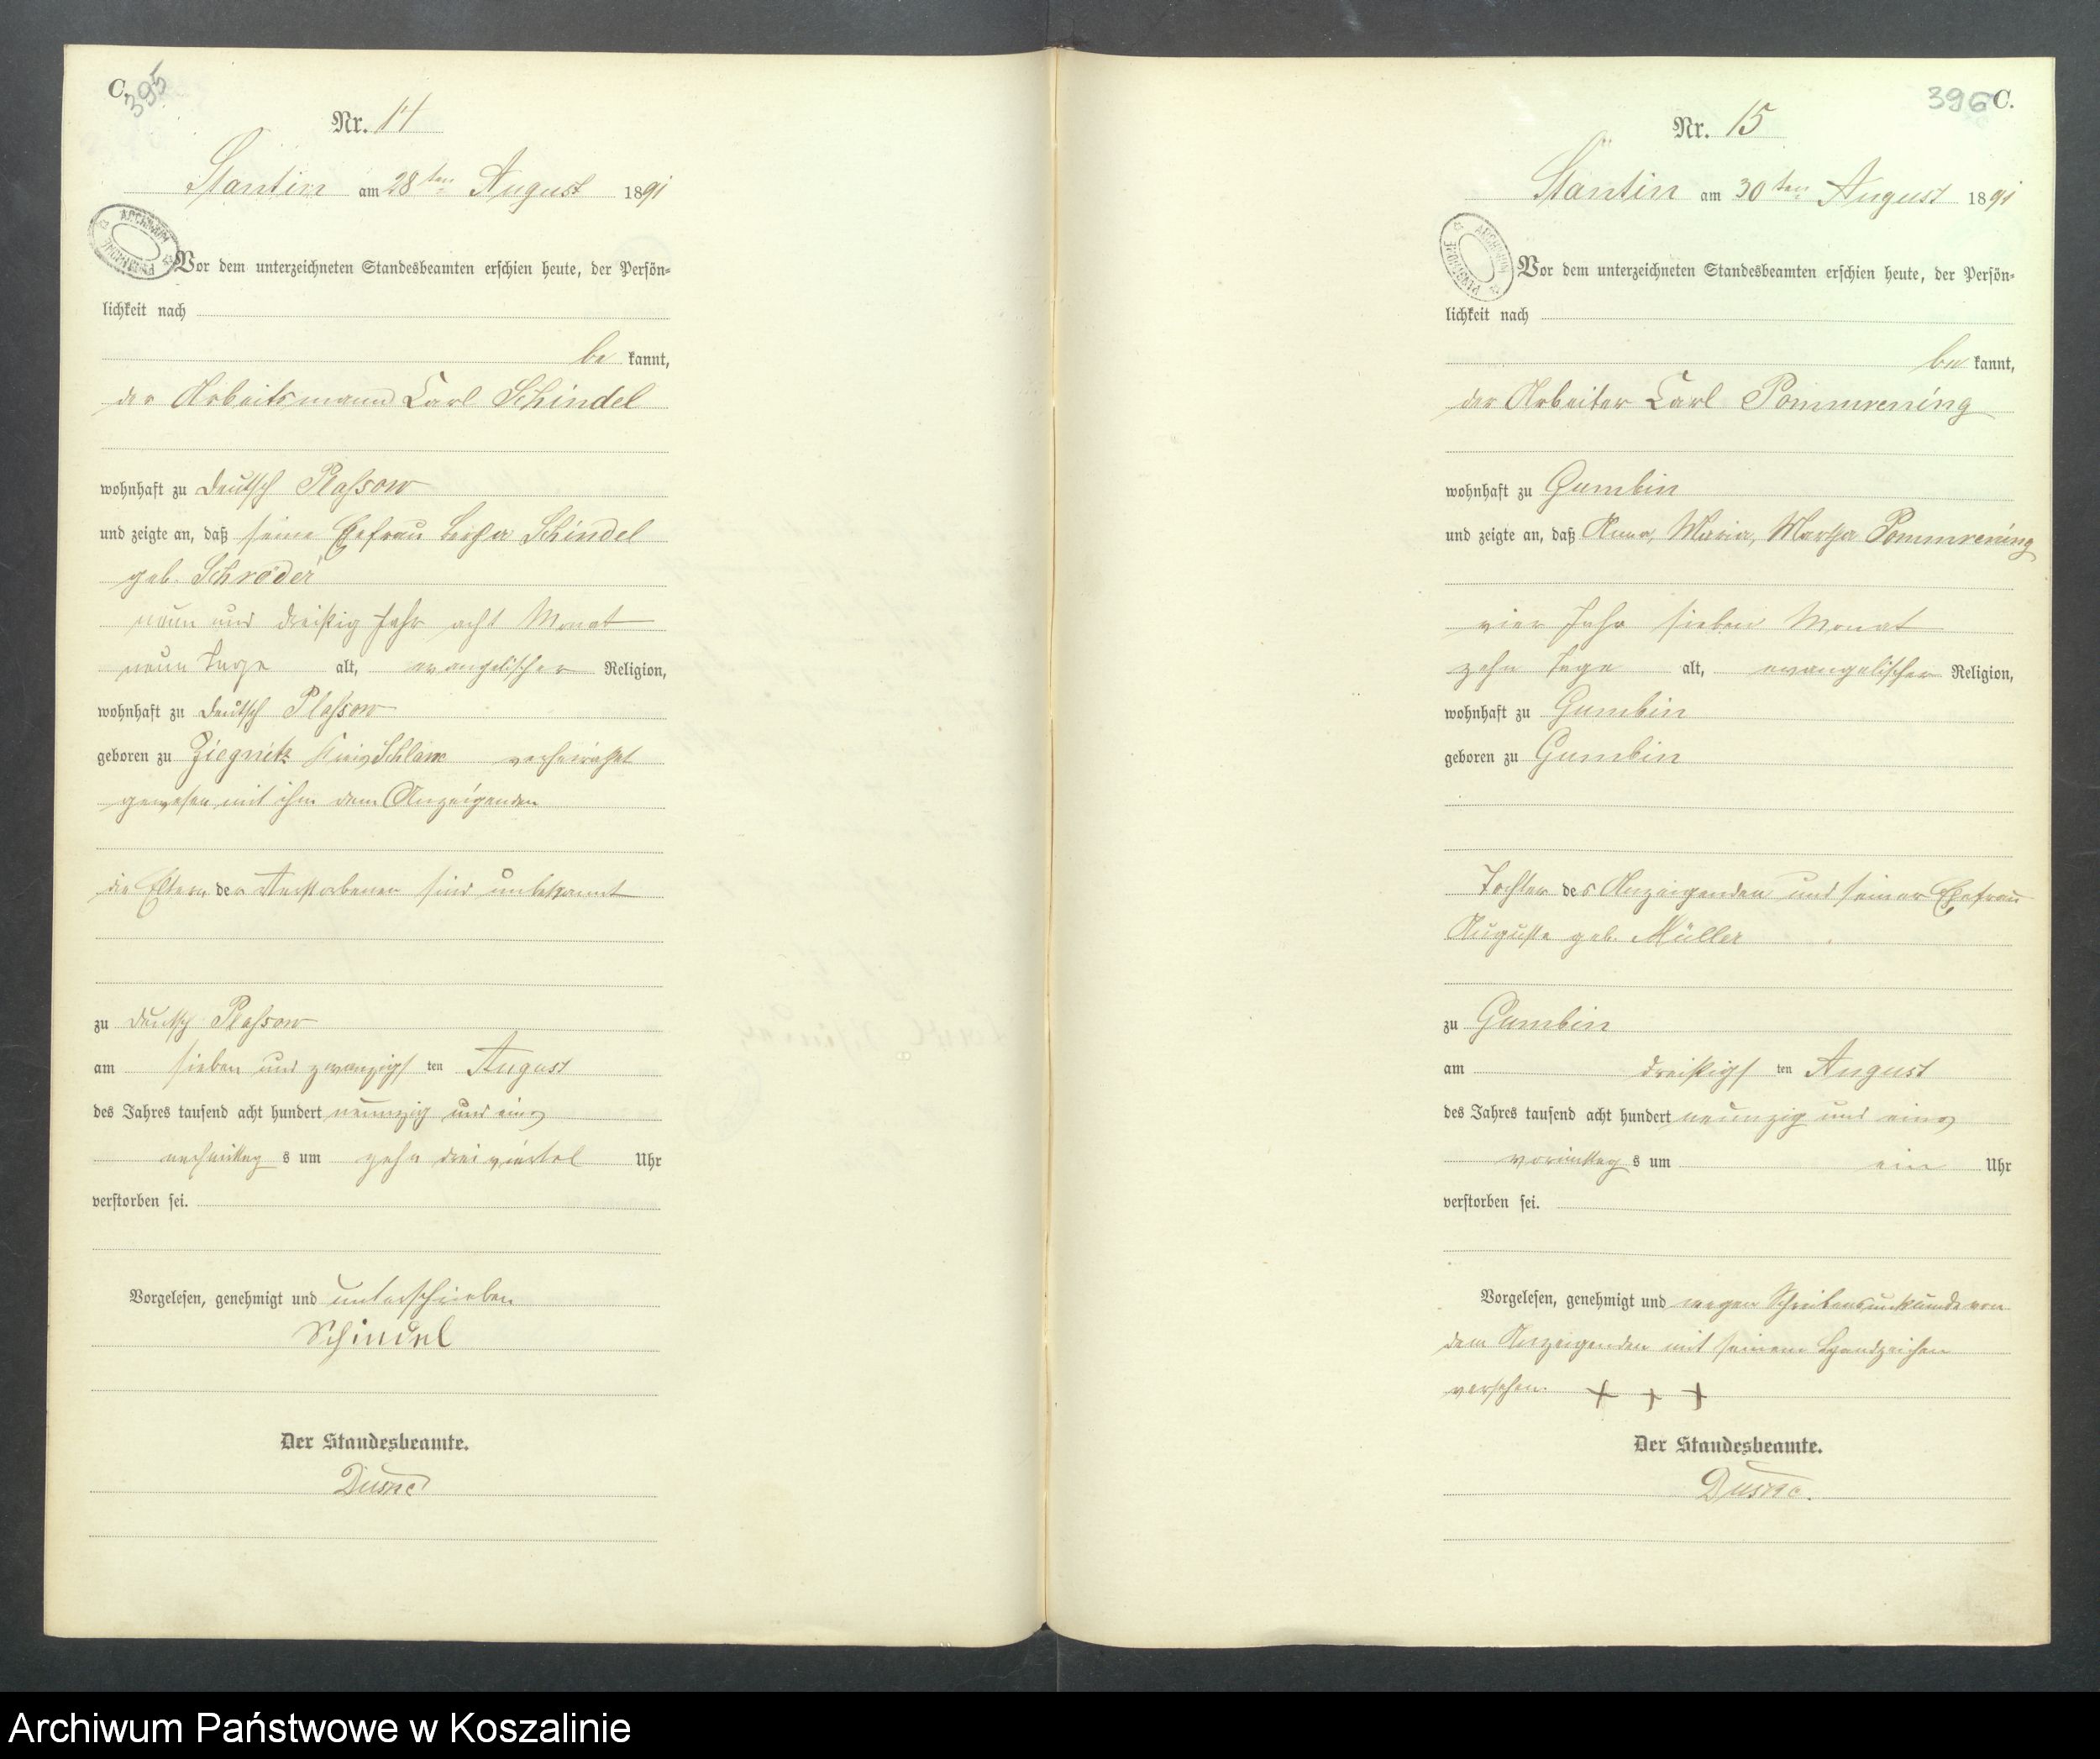 C.
395
Nr. 14
Stantin am 28ten August 1891
ARCHIWUM PAŃSTWOWE
Vor dem unterzeichneten Standesbeamten erschien heute, der Persön=
lichkeit nach
be kannt,
der Arbeitsmann Carl Schindel
wohnhaft zu Deutsch Plassow
und zeigte an, daß seine Ehefrau Schindel
geb. Schröder
neun und dreißig Jahr acht Monat
neun Tage alt, evangelischer Religion,
wohnhaft zu Deutsch Plassow
geboren zu Ziegnitz Kreis Schlawe verheirathet
gewesen mit ihm dem Anzeigenden
die Eltern der Verstorbenen sind unbekannt
zu Deutsch Plassow
am sieben und zwanzigsten August
des Jahres tausend acht hundert neunzig und eins
nachmittags um zehn drei viertel Uhr
verstorben sei.
Vorgelesen, genehmigt und unterschrieben
Schindel
Der Standesbeamte.
396 C.
Nr. 15
Stantin am 30ten August 1891
ARCHIWUM PAŃSTWOWE
Vor dem unterzeichneten Standesbeamten erschien heute, der Persön=
lichkeit nach
be kannt,
der Arbeiter Carl Pommrening
wohnhaft zu Gumbin
und zeigte an, daß Anna, Maria, Martha Pommrening
vier Jahr sieben Monat
zehn Tage alt, evangelischer Religion,
wohnhaft zu Gumbin
geboren zu Gumbin
Tochter des Anzeigenden und seiner Ehefrau
Auguste geb. Müller
zu Gumbin
am dreißigsten August
des Jahres tausend acht hundert neunzig und eins
vormittags um ein Uhr
verstorben sei.
Vorgelesen, genehmigt und wegen Schreibensunkunde von
dem Anzeigenden mit seinem Handzeichen
versehen. + + +
Der Standesbeamte.
Archiwum Państwowe w Koszalinie